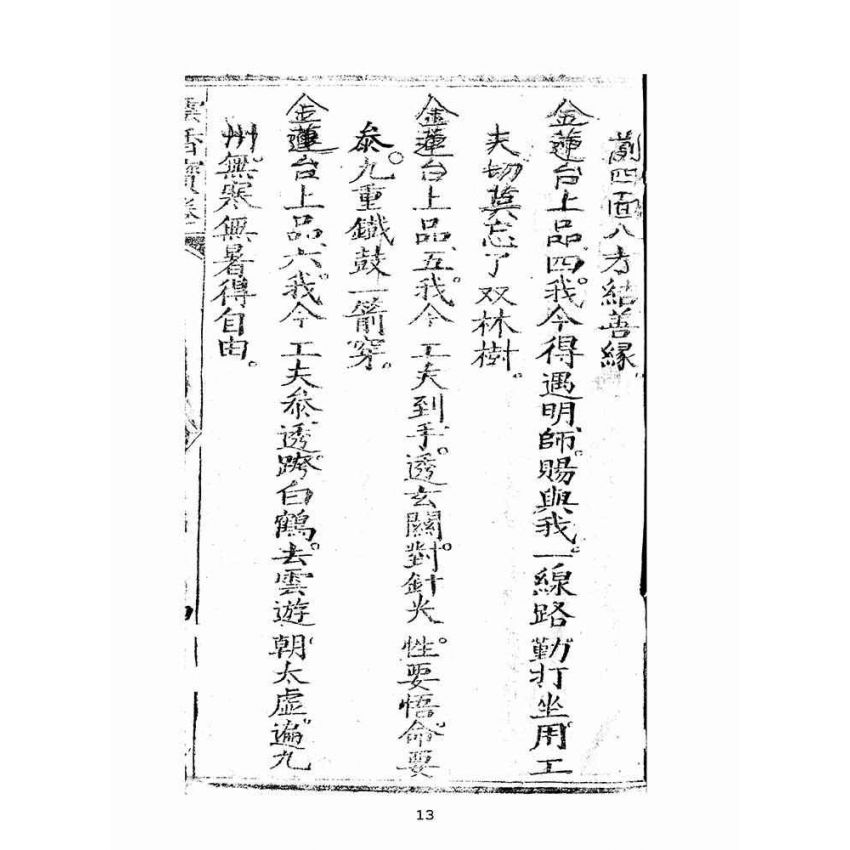 四面八方結善緣。
金蓮台上品四。我今得遇明師。賜與我。一線路勤打坐。用工
夫切莫忘了双林樹。
金蓮台上品五。我今工夫到手。透玄關。對針光性。要悟。命要
叅。九重鐵鼓一箭穿。
金蓮台上品六。我今工夫叅透。跨白鶴。去雲遊朝太虛。遍九
州。無寒無暑得自由。
香寶卷
13